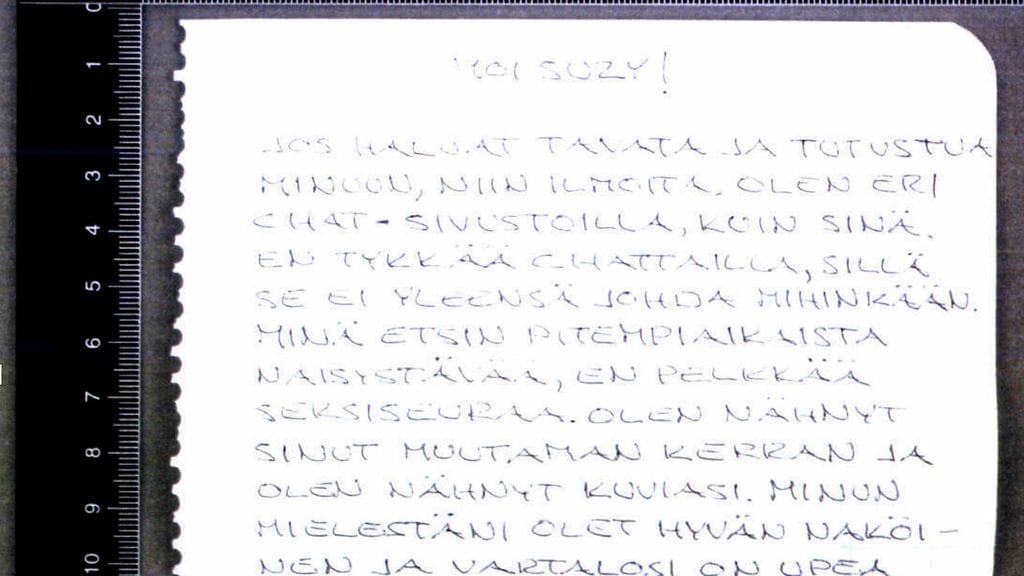 0
1
2
3
4
5
6
7
8
9
10
MOI SUZY!
JOS HALUAT TAVATA JA TUTUSTUA
MINUUN, NIIN ILMOITA. OLEN ERI
CHAT-SIVUSTOILLA, KUIN SINÄ.
EN TYKKÄÄ CHATTAILLA, SILLÄ
SE EI YLEENSÄ JOHDA MIHINKÄÄN.
MINÄ ETSIN PITEMPIAIKAISTA
NAISYSTÄVÄÄ, EN PELKKÄÄ
SEKSISEURAA. OLEN NÄHNYT
SINUT MUUTAMAN KERRAN JA
OLEN NÄHNYT KUVIASI. MINUN
MIELESTÄNI OLET HYVÄN NAKÖI-
NEN JA VARTALOSI ON UPEA